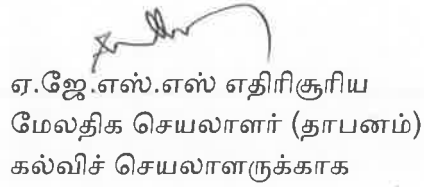 ஏ.ஜே.எஸ்.எஸ் எதிரிசூரிய
மேலதிக செயலாளர் (தாபனம்)
கல்விச் செயலாளருக்காக